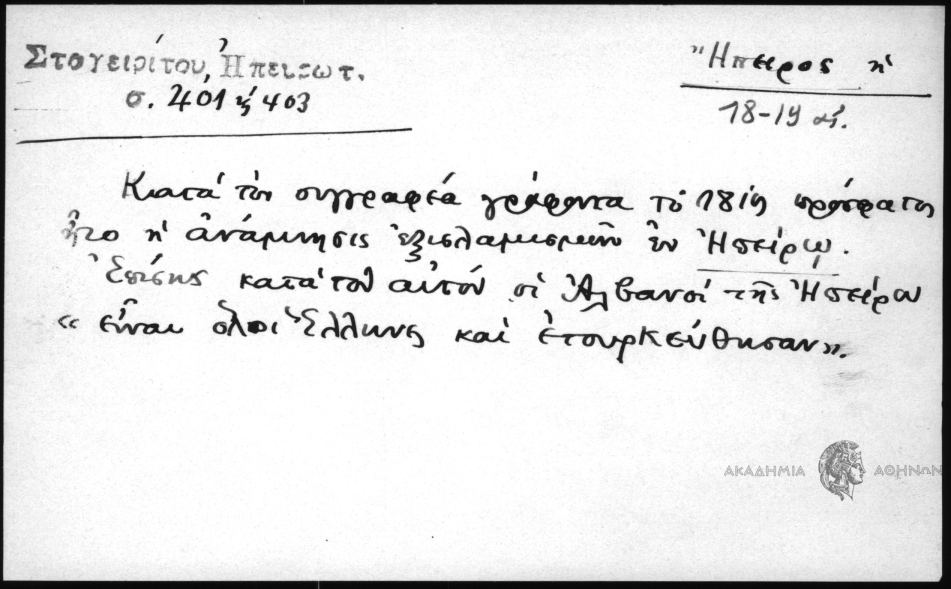 Σταγειρίτου, Ἠπειρωτ.
σ. 401 ἑ 403
Ἤπειρος ἡ
18-19 αἰ.
Κατὰ τὸν συγγραφέα γράφοντα τὸ 1819 πρόσφατος
ἦτο ἡ ἀνάμνησις ἐξισλαμισμῶν ἐν Ἠπείρῳ.
Ἐπίσης κατὰ τὸν αὐτὸν οἱ Ἀλβανοί τῆς Ἠπείρου
« εἶναι ὅλοι Ἕλληνες καὶ ἐτουρκεύθησαν».
ΑΚΑΔΗΜΙΑ ΑΘΗΝΩΝ